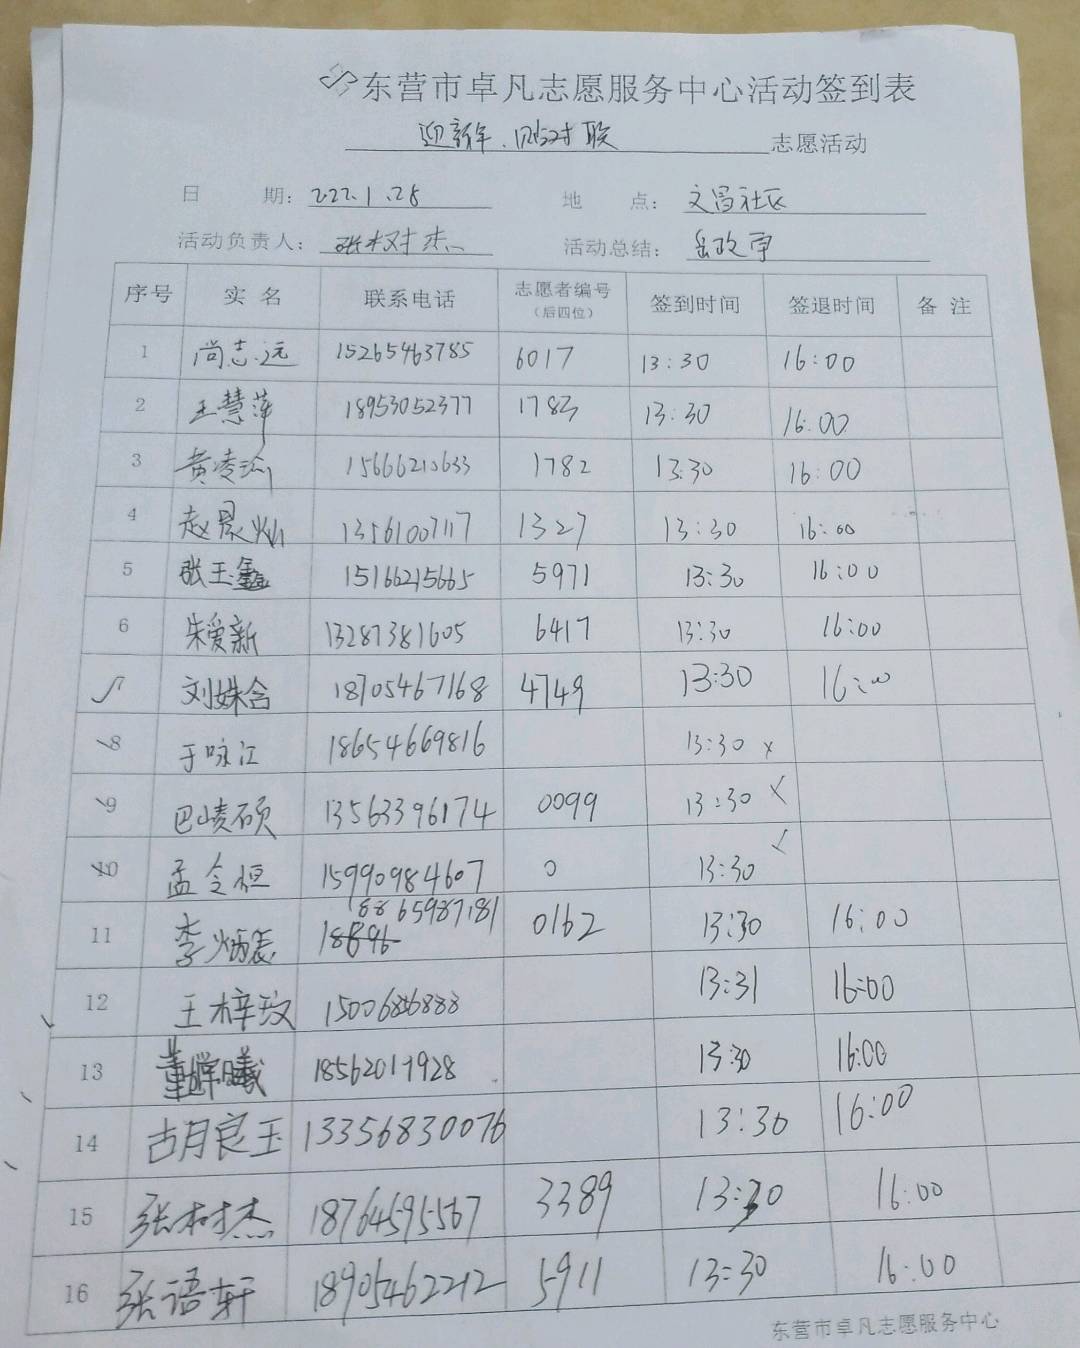 东营市卓凡志愿服务中心活动签到表
迎新年、贴对联 志愿活动
日 期: 2022.1.28 地 点: 文昌社区
活动负责人: 张树杰 活动总结: 岳政宇
序号 实名 联系电话 志愿者编号(后四位) 签到时间 签退时间 备注
1 尚志远 15265463785 6017 13:30 16:00
2 王慧萍 18953052377 1783 13:30 16:00
3 黄凌瑜 15666210633 1782 13:30 16:00
4 赵晨灿 13561007117 1327 13:30 16:00
5 张玉鑫 15166215665 5971 13:30 16:00
6 朱爱新 13287381605 6417 13:30 16:00
刘姝含 18705467168 4749 13:30 16:00
8 于咏江 18654669816 13:30 x
9 巴崚硕 13563396174 0099 13:30
10 孟令恒 15990984607 0 13:30
11 李炳宸 18865987181 0162 13:30 16:00
12 王梓玟 15006856888 13:31 16:00
13 董 曦 18562019928 13:30 16:00
14 胡良玉 13356830076 13:30 16:00
15 张树杰 18764595567 3389 13:30 16:00
16 张语轩 18905462212 5911 13:30 16:00
东营市卓凡志愿服务中心